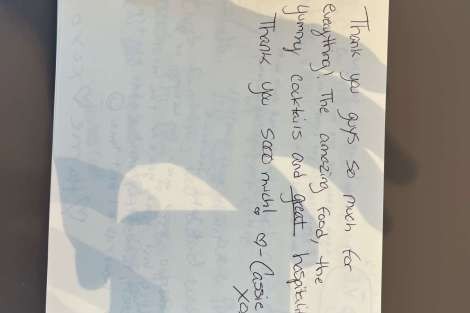 Thank you guys so much for
everything! The amazing food, the
yummy cocktails and great hospitali
Thank you sooo much! ♡ - Cassie
xo